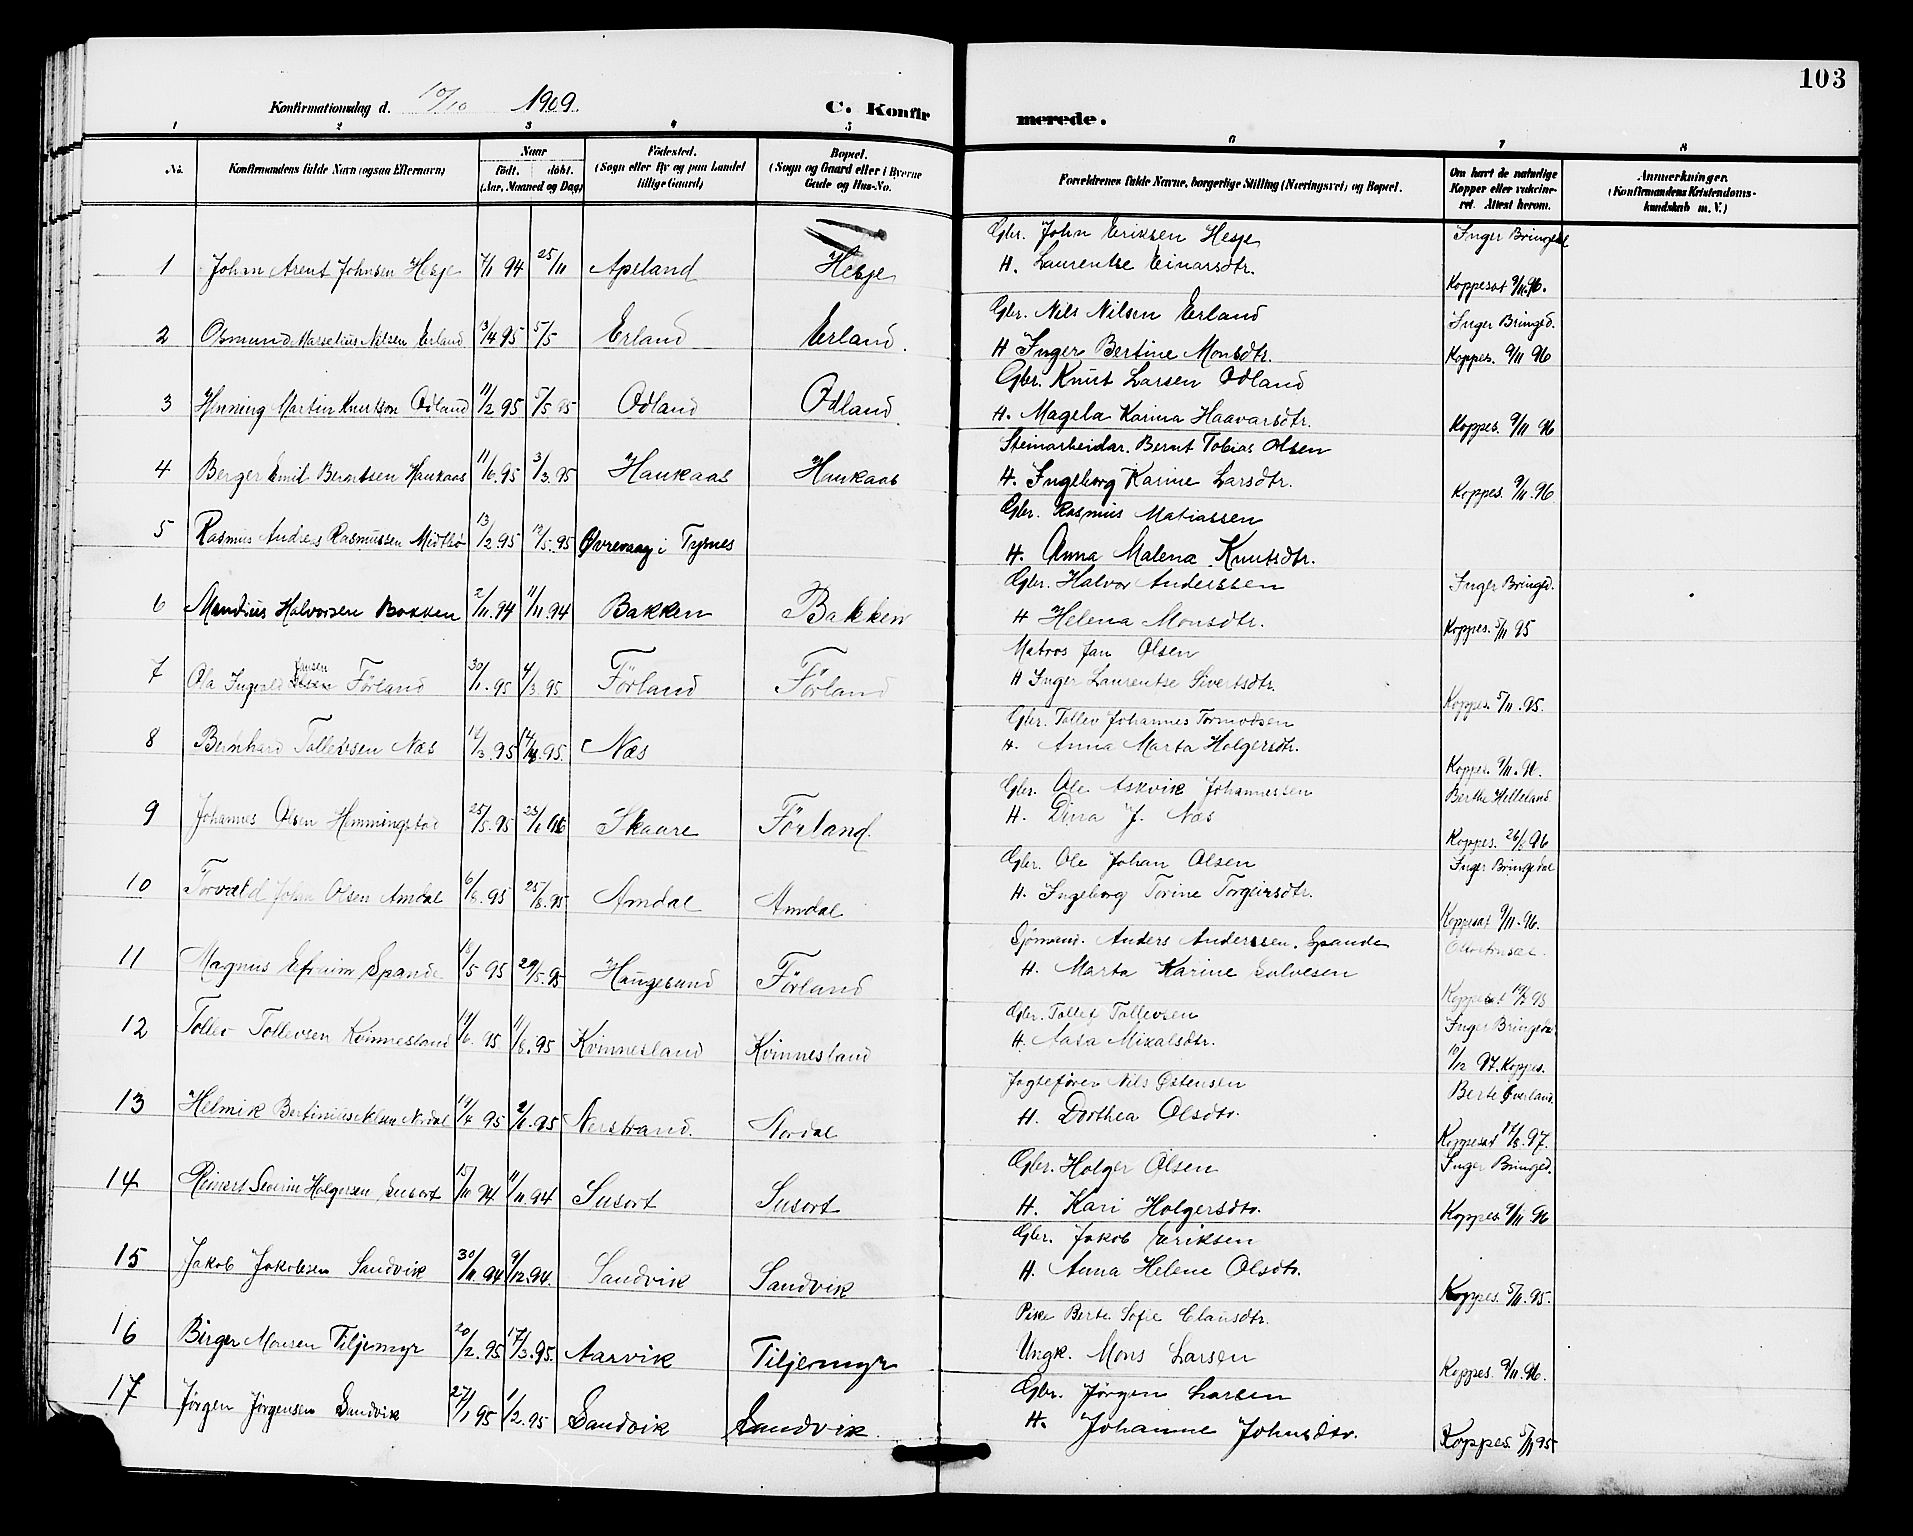 103
Konfirmationsdag d. 10/10 1909. C. Konfirmerede.
1 2 3 4 5 6 7 8
No. Konfirmandens fulde Navn (ogsaa Efternavn) Naar födt. döbt. (Aar, Maaned og Dag) Födested. (Sogn eller By og paa Landet tillige Gaard) Bopæl. (Sogn og Gaard eller i Byerne Gade og Hus-No. Forældrenes fulde Navne, borgerlige Stilling (Næringsvei) og Bopæl. Om havt de naturlige Kopper eller vakcineret. Attest herom. Anmerkninger. (Konfirmandens Kristendomskundskab m. V.)
Gbr. John Eriksen Hesje Inger Bringedal
1 Johan Arent Johnsen Hesje 7/11 94 25/11 Apeland Hesje H. Laurentse Einarsdtr. Koppesat 9/11 96.
Gbr. Nils Nilsen Erland Inger Bringed.
2 Osmund Masselius Nilsen Erland 3/4 95 5/5 Erland Erland. H Inger Bertine Monsdtr. Koppes. 9/11 96
Gbr. Knut Larsen Odland
3 Henning Martin Knutson Odland 11/2 95 5/5 95 Odland Odland. H. Magela Karina Haavarsdtr. Koppes. 9/11 96
Steinarbeidar. Bernt Tobias Olsen
4 Berger Emil Berntsen Haukaas 95 3/3.95 Haukaas Haukaas H. Ingeborg Karine Larsdtr. Koppes. 9/11.96
Gbr. Rasmus Matiassen
5 Rasmus Andreas Rasmussen Midtbø 13/2 95 12/5.95 Øvrevaag i Tysnes H. Anna Malena Knutsdtr.
Gbr. Halvor Anderssen Inger Bringed.
6 Mandius Halvorsen Bakken 2/11.94 11/11.94 Bakken Bakken H Helena Monsdtr. Koppes. 5/11 95
Matros Jan Olsen
7 Ola Ingvald Jansen Förland 30/1.95 4/3 95 Förland Förland H Inger Laurentse Sivertsdtr. Koppes. 5/11.95.
Gbr. Tollev Johannes Tormodsen
8 Bernhard Tollevsen Næs 12/3.95 95. Næs H. Anna Marta Holgersdtr. Koppes. 9/11.96.
Gbr. Ole Askvik Johannessen Berthe Helleland
9 Johannes Olsen Hemmingstad 25/5.95 Skaare Förland. H. Dina J. Næs Koppes. 96
Gbr. Ole Johan Olsen Inger Bringedal
10 Torvald John Olsen Amdal 6/6.95 25/6.95 Amdal Amdal H. Ingeborg Torine Torgeirsdtr. Koppesat 9/11.96.
Sjömand. Anders Anderssen. Spande
11 Magnus Efraim Spande 95 29/5.95 Haugesund Förland H. Marta Karine Salvesen Koppesat
Gbr. Tollef Tollevsen Inger Bringedal
12 Tollev Tollevsen Kvinnesland 95. 95 Kvinnesland Kvinnesland H. Aasa Mikalsdtr. 10/12 97. Koppes.
Jagtefører Nils Østensen Berte Øverland.
13 Helmik Bertinius Nilsen Nordal 14/4 95 2/6.95 Nerstrand. Nordal H. Dorthea Olsdtr. Koppesat 97.
Gbr. Holger Olsen Inger Bringed.
14 Reinert Severin Holgersen Susort 94 11/11.94 Susort Susort H. Kari Holgersdtr. Koppes. 9/11 96
Gbr. Jakob Eriksen
15 Jakob Jakobsen Sandvik 30/11.94 9/12.94. Sandvik Sandvik H. Anna Helene Olsdtr. Koppes. 5/11.95.
Pike Berte Sofie Clausdtr.
16 Birger Monsen Tiljemyr 20/2.95 17/3.95. Aarvik Tiljemyr Ungk. Mons Larsen Koppes. 9/11.96.
Gbr. Jørgen Larsen
17 Jørgen Jørgensen Sandvik 27/1 95 1/2.95 Sandvik Sandvik. H. Johanne Johnsdtr. Koppes. 5/11 95